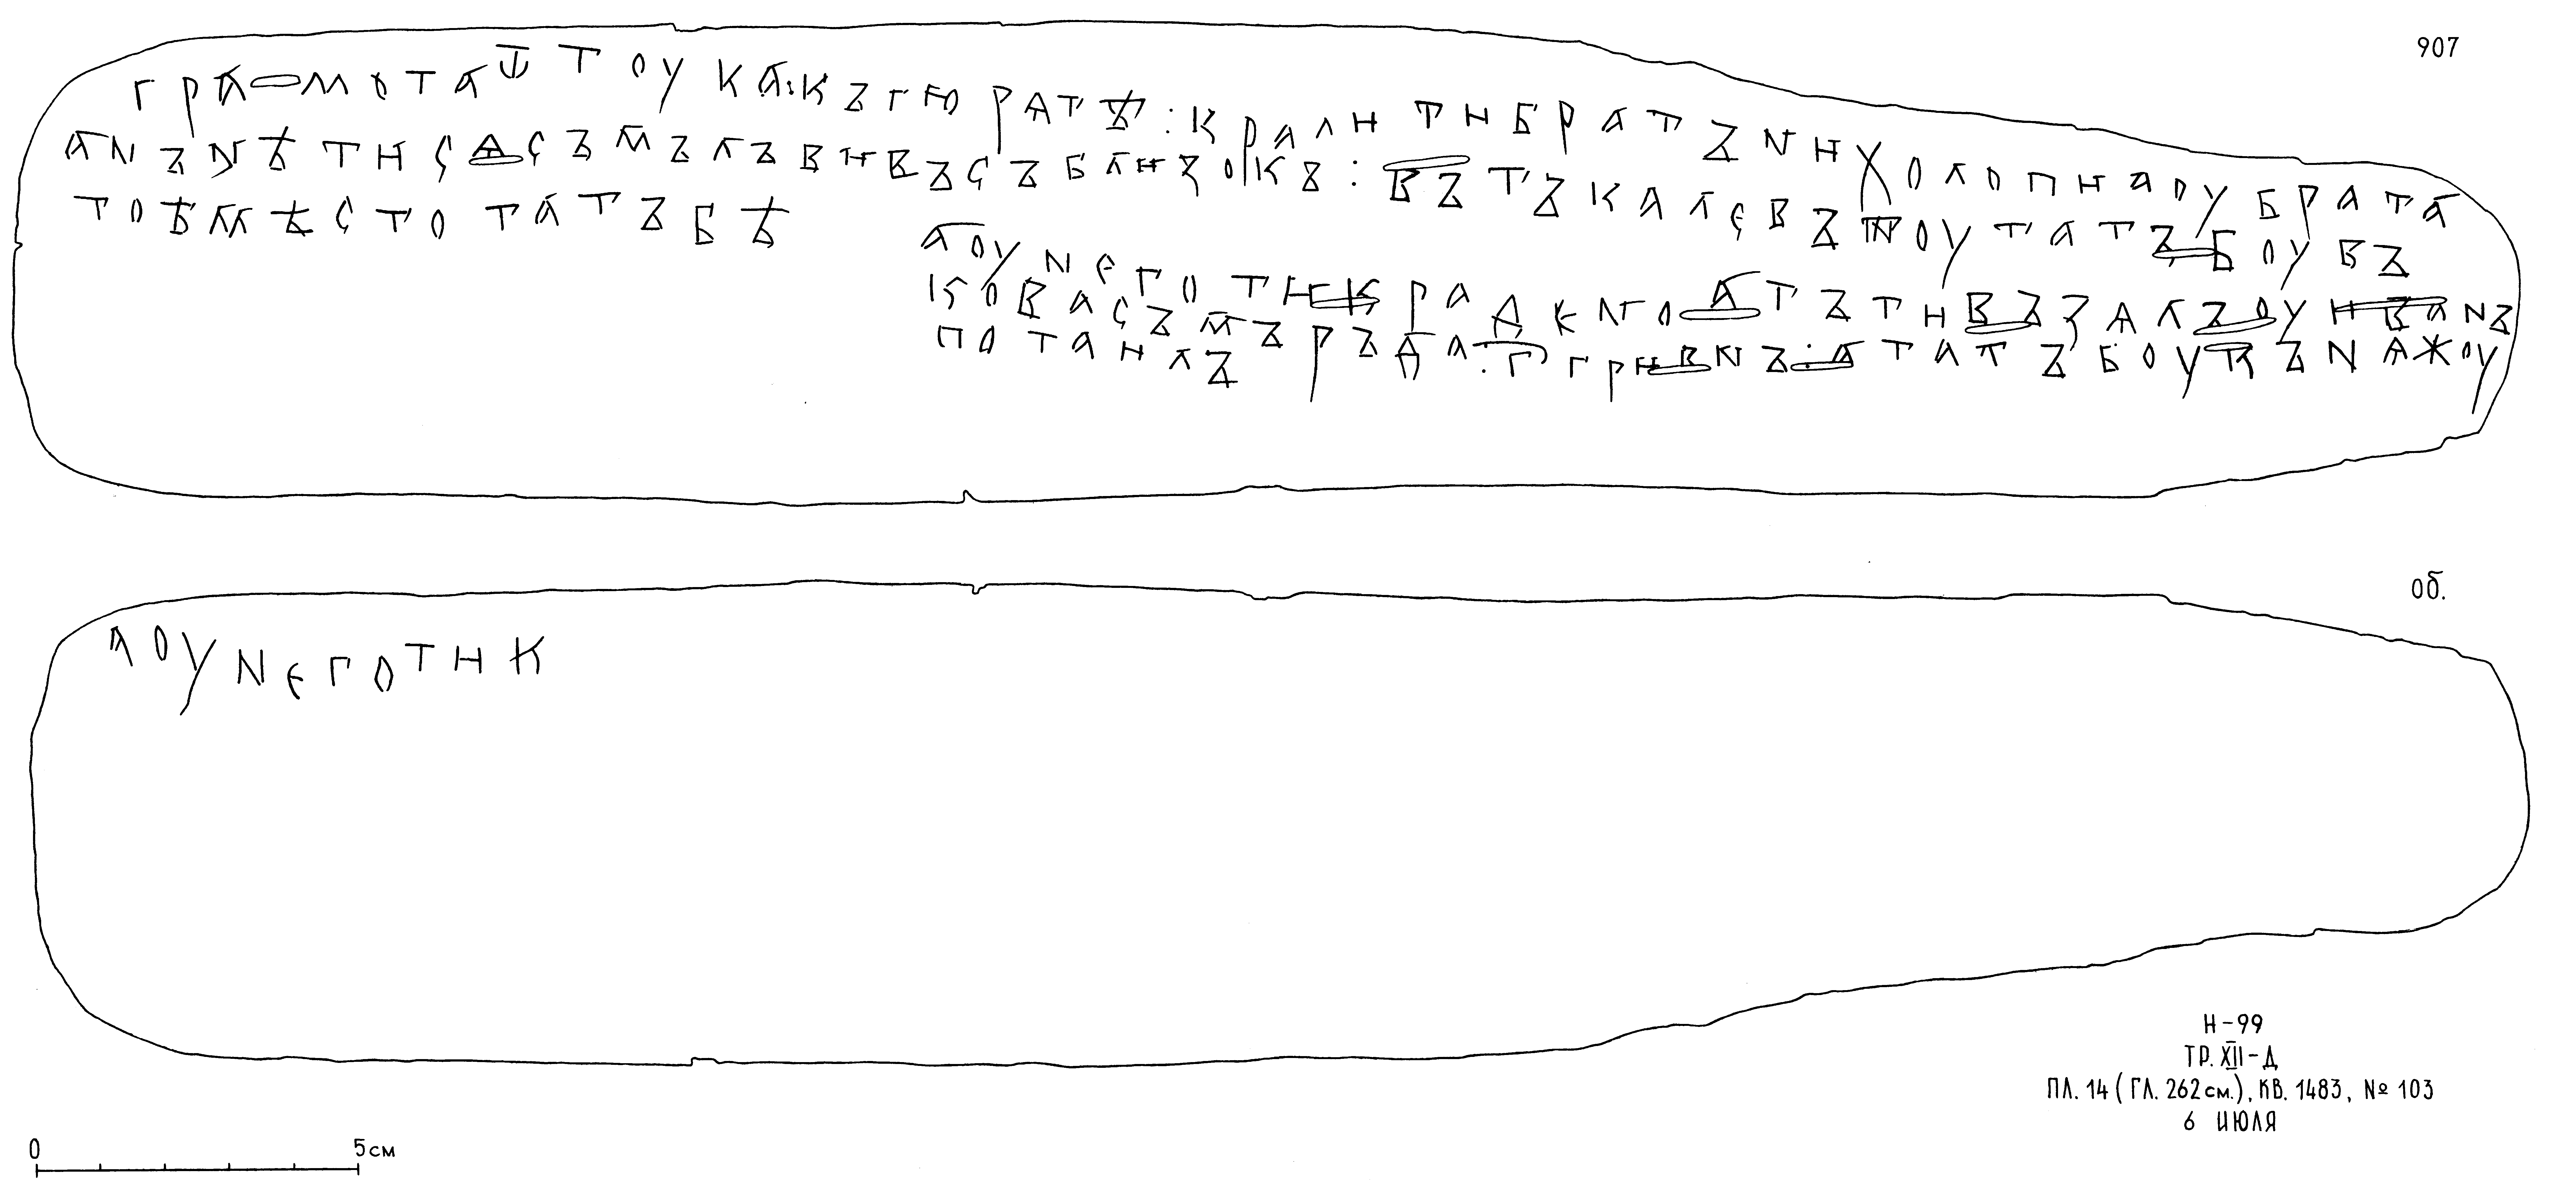 грамота ѿ тоука : къ гюратѣ : крали ти братъни холопи а оу брата
анъ нѣ ти са съмълъвивъ съ близокъ : въ тъкале въ поу татъбоу въ
то ѣ мѣсто татъбѣ
а оу него ти крадено а тъ ти възалъ оу иванъ
кова съмъръда · г҃ · гривнъ : а та татъбоу въ нажоу
потаилъ
907
об.
а оу него ти к
Н-99
ТР. XII-Д
ПЛ. 14 (ГЛ. 262 см.), КВ. 1483, № 103
6 ИЮЛЯ
0 5 см